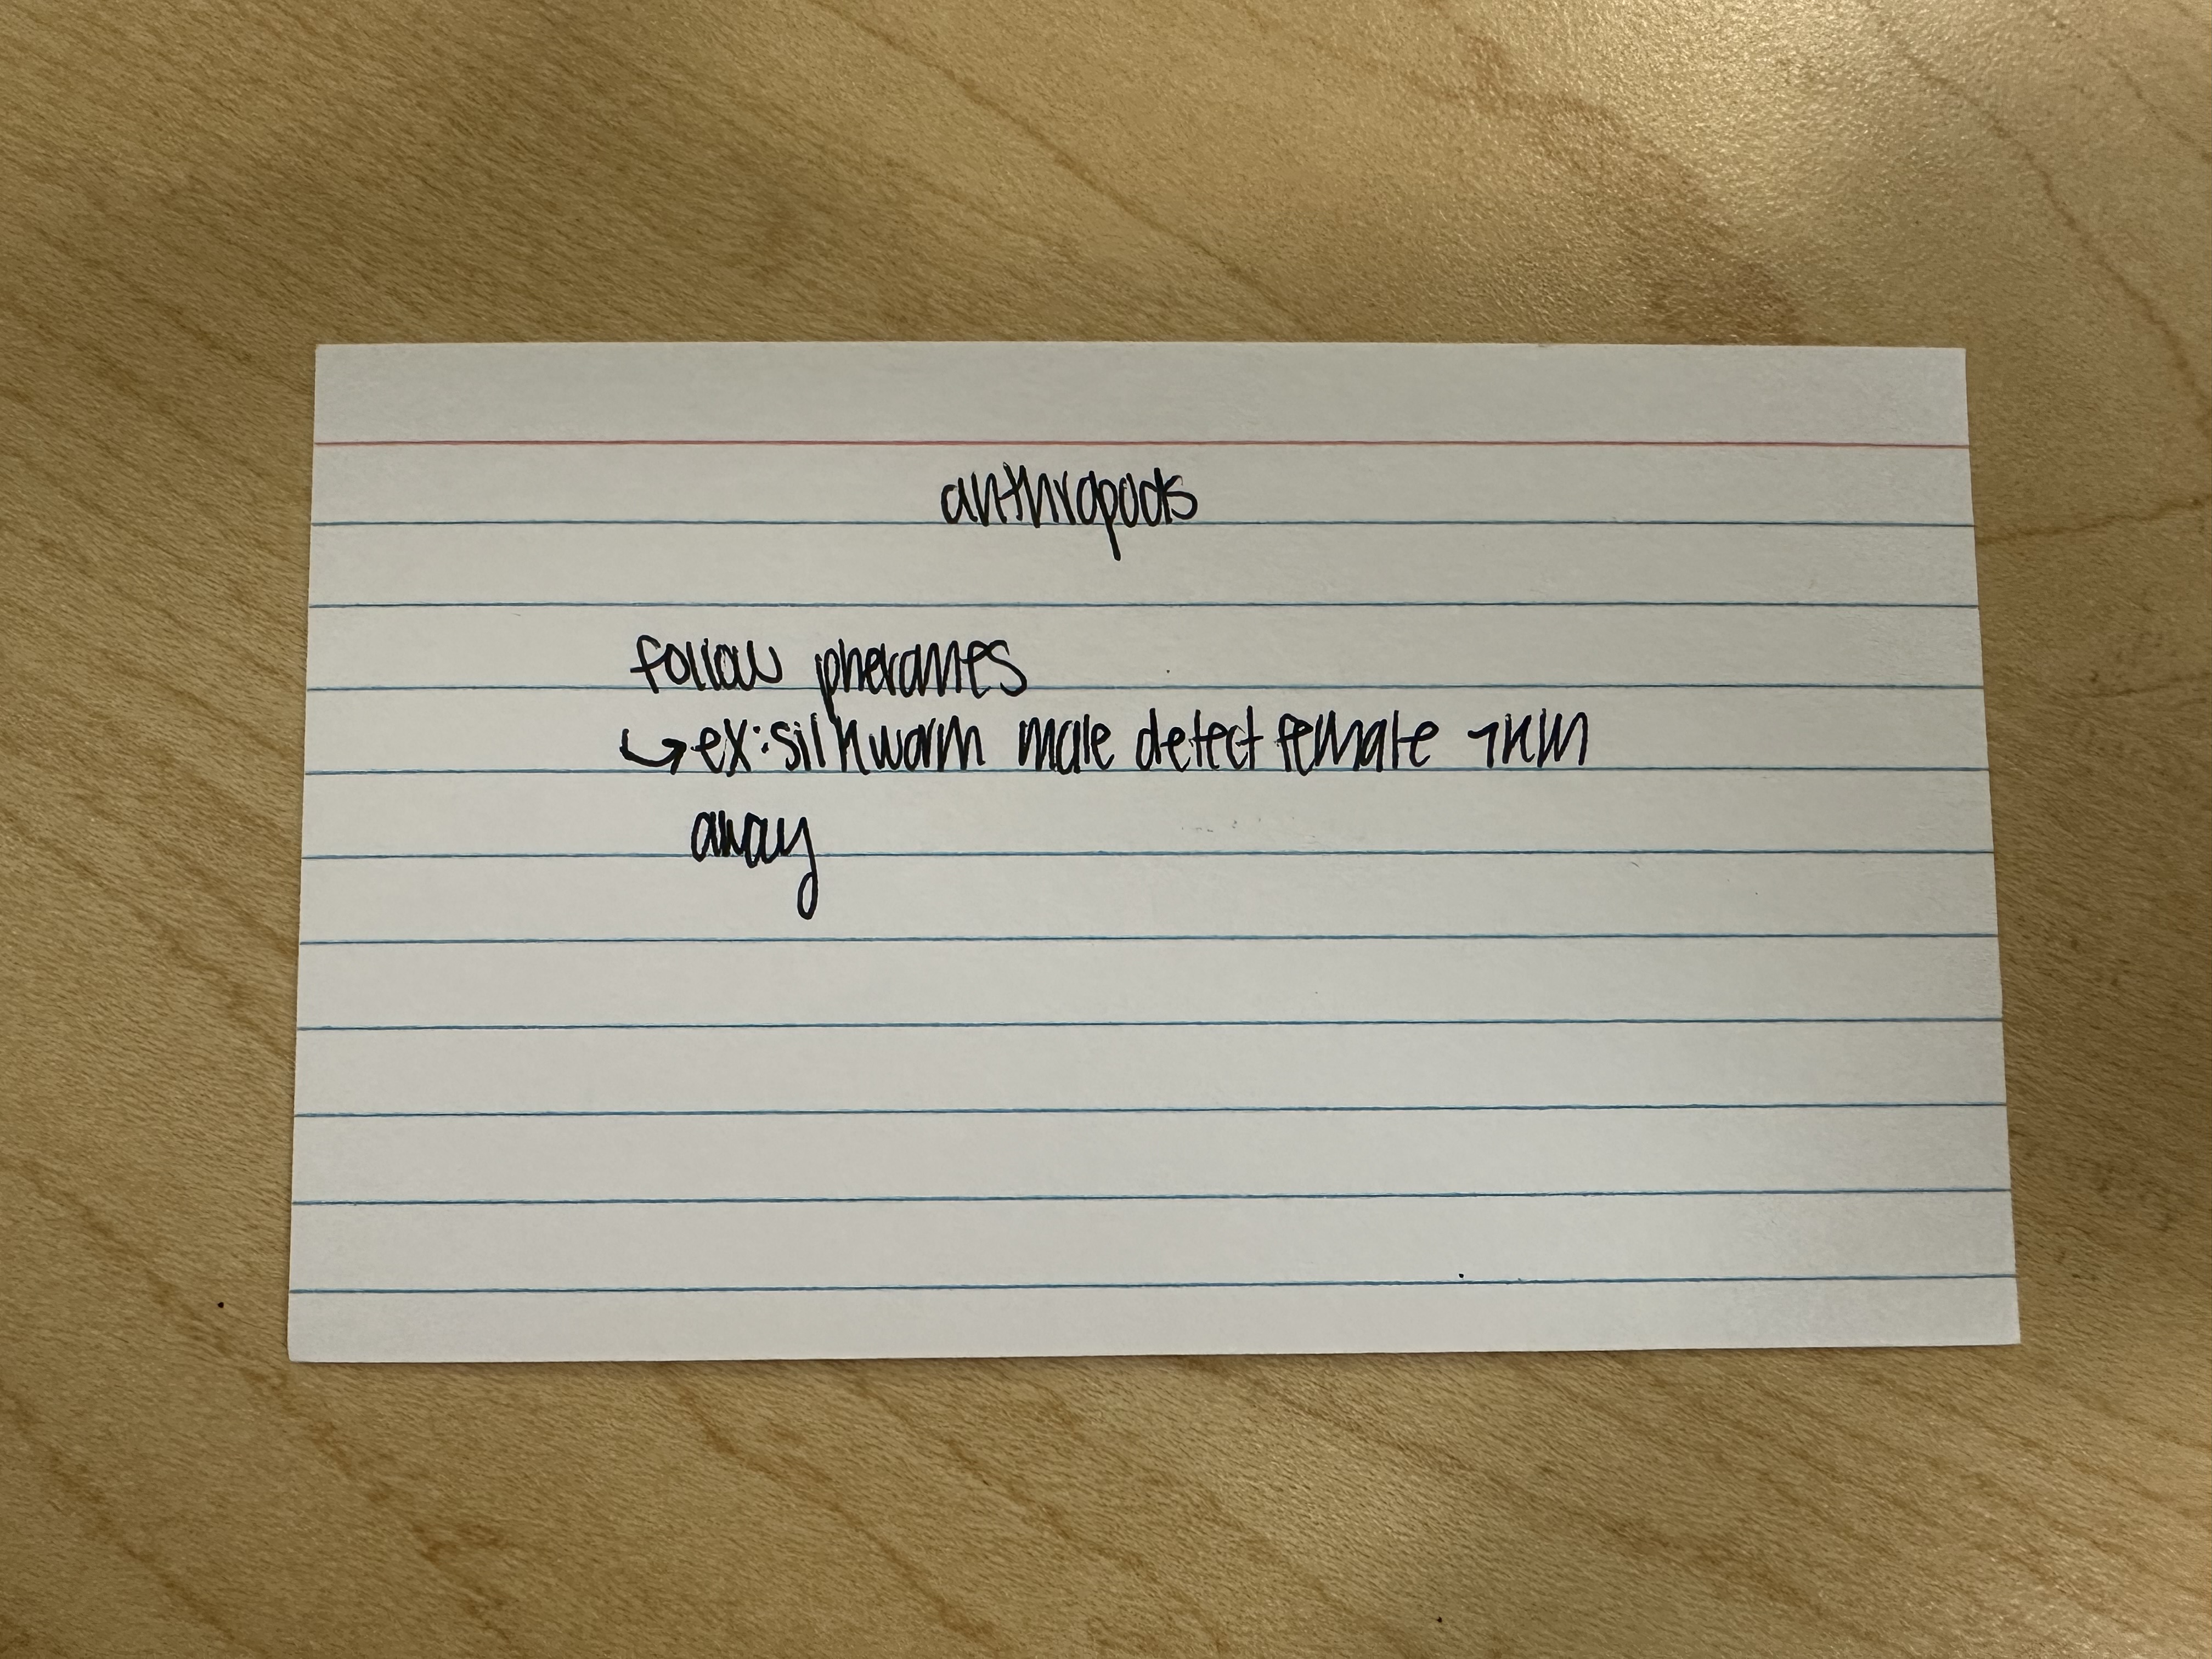 anthropods
follow pheromes
↳ ex: silkworm male detect female 1km
away